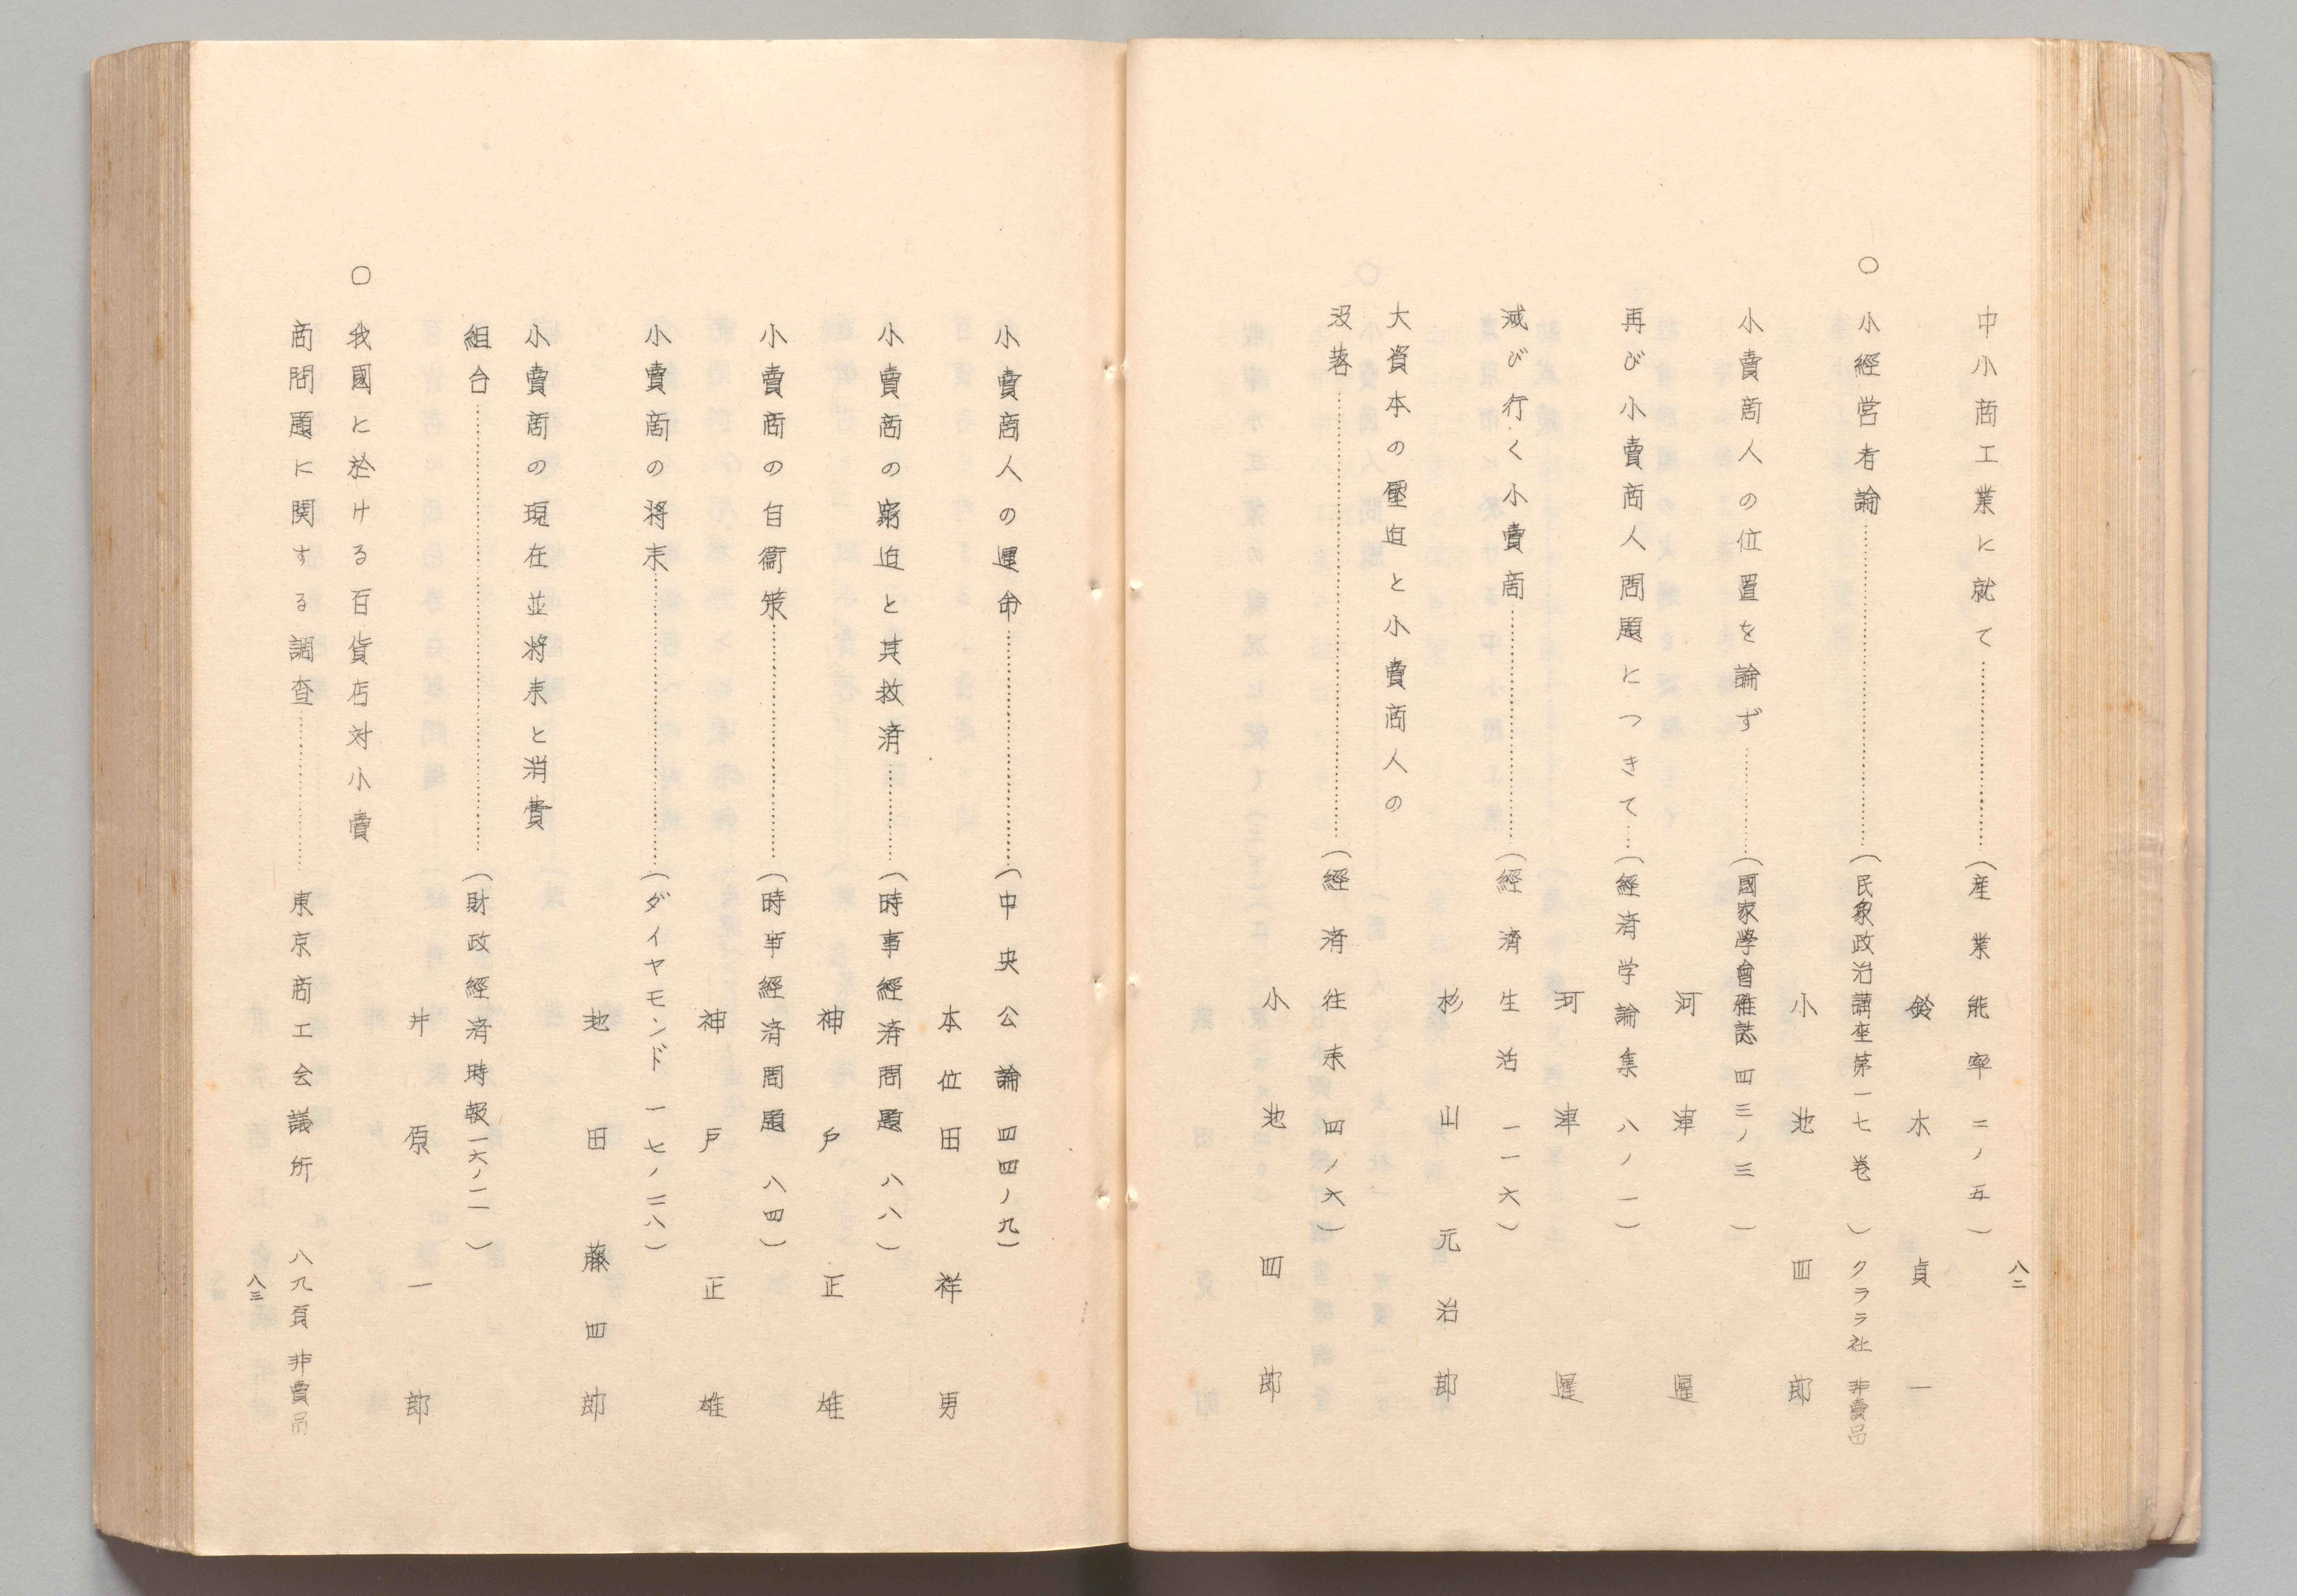 八二
中小商工業に就て…………(産業能率 二ノ五)
鈴木貞一
○小經営者論…………(民衆政治講座第一七巻)クララ社 非賣品
小池四郎
小賣商人の位置を論ず…………(國家學會雜誌 四三ノ三)
河津暹
再び小賣商人問題につきて…(經済学論集 八ノ一)
河津暹
滅び行く小賣商…………(經濟生活 一一六)
杉山元治郎
大資本の壓迫と小賣商人の
没落…………(經濟往来 四ノ六)
小池四郎
小賣商人の運命…………(中央公論 四四ノ九)
本位田祥男
小賣商の窮迫と其救済…………(時事經済問題 八八)
神戸正雄
小賣商の自衞策…………(時事經済問題 八四)
神戸正雄
小賣商の将来…………(ダイヤモンド 一七ノ二八)
池田藤四郎
小賣商の現在並将来と消費
組合…………(財政經済時報 一六ノ二)
井原一郎
○我國に於ける百貨店対小賣
商問題に関する調査…………東京商工会議所 八九頁 非賣品
八三